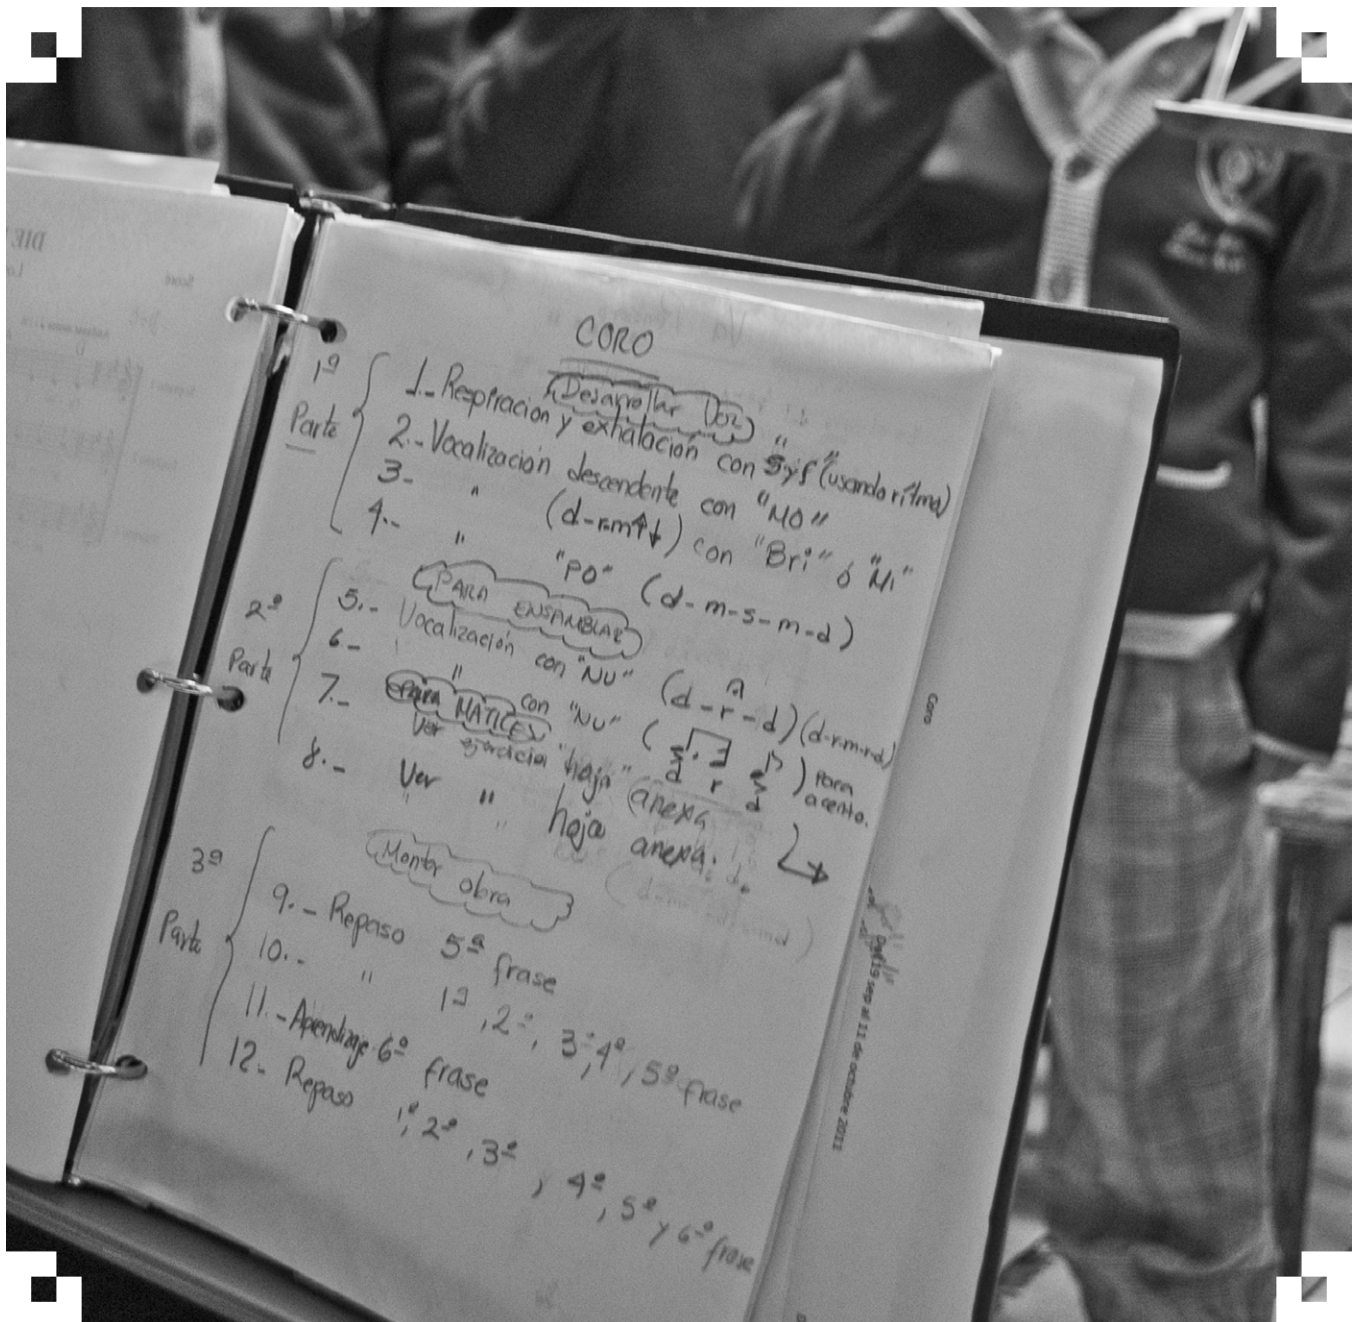 CORO
1ª Parte
Desarrollar Voz
1.- Respiración y exhalación con "S y f" (usando ritmo)
2.- Vocalización descendente con "MO"
3.- " (d-r-m↑↓) con "Bri" ó "Mi"
4.- " "PO" (d-m-s-m-d)
2ª Parte
PARA ENSAMBLAR
5.- Vocalización con "NU" (d-r-d) (d-r-m-r-d)
6.- " con "NU" (d r d) para acento.
PARA MATICES
7.- Ver ejercicio "hoja" (anexa
8.- Ver " hoja anexa.
3ª Parte
Montar obra
9.- Repaso 5ª frase
10.- " 1ª, 2ª, 3ª, 4ª, 5ª frase
11.- Aprendizaje 6ª frase
12.- Repaso 1ª, 2ª, 3ª, 4ª, 5ª y 6ª frase
Coro
19 sep al 11 de octubre 2011
DIE
Score